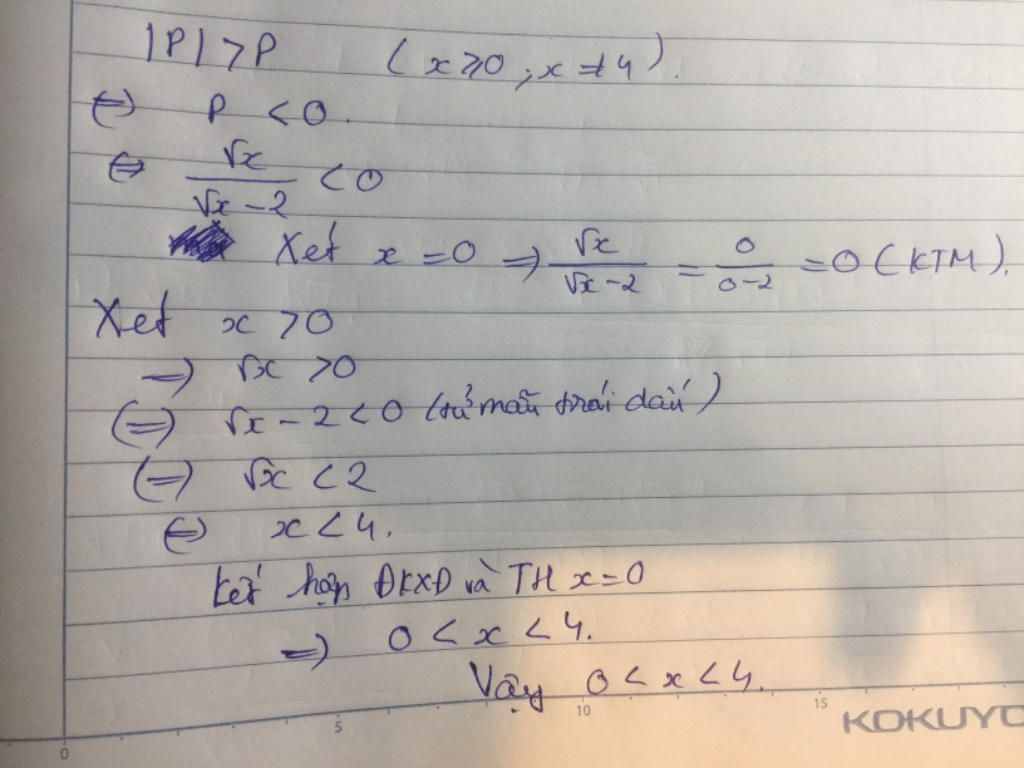 |P| > P ( x ⩾ 0 ; x ≠ 4 ).
⇔ P < 0.
⇔ √x / (√x - 2) < 0
Xét x = 0 ⇒ √x / (√x - 2) = 0 / (0 - 2) = 0 (KTM).
Xét x > 0
⇒ √x > 0
⇔ √x - 2 < 0 (tử mẫu trái dấu)
⇔ √x < 2
⇔ x < 4.
Kết hợp ĐKXĐ và TH x = 0
⇒ 0 < x < 4.
Vậy 0 < x < 4.
0 5 10 15 KOKUYO